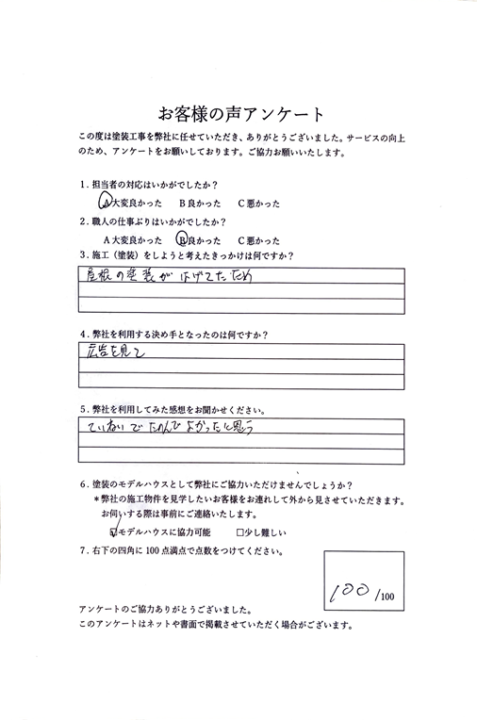 お客様の声アンケート
この度は塗装工事を弊社に任せていただき、ありがとうございました。サービスの向上
のため、アンケートをお願いしております。ご協力お願いいたします。
1. 担当者の対応はいかがでしたか?
A 大変良かった B 良かった C 悪かった
2. 職人の仕事ぶりはいかがでしたか?
A 大変良かった B 良かった C 悪かった
3. 施工（塗装）をしようと考えたきっかけは何ですか?
屋根の塗装がはげてたため
4. 弊社を利用する決め手となったのは何ですか?
広告を見て
5. 弊社を利用してみた感想をお聞かせください。
ていねいでたのんでよかったと思う
6. 塗装のモデルハウスとして弊社にご協力いただけませんでしょうか?
＊弊社の施工物件を見学したいお客様をお連れして外から見させていただきます。
お伺いする際は事前にご連絡いたします。
☑モデルハウスに協力可能 □少し難しい
7. 右下の四角に 100 点満点で点数をつけてください。
100/100
アンケートのご協力ありがとうございました。
このアンケートはネットや書面で掲載させていただく場合がございます。